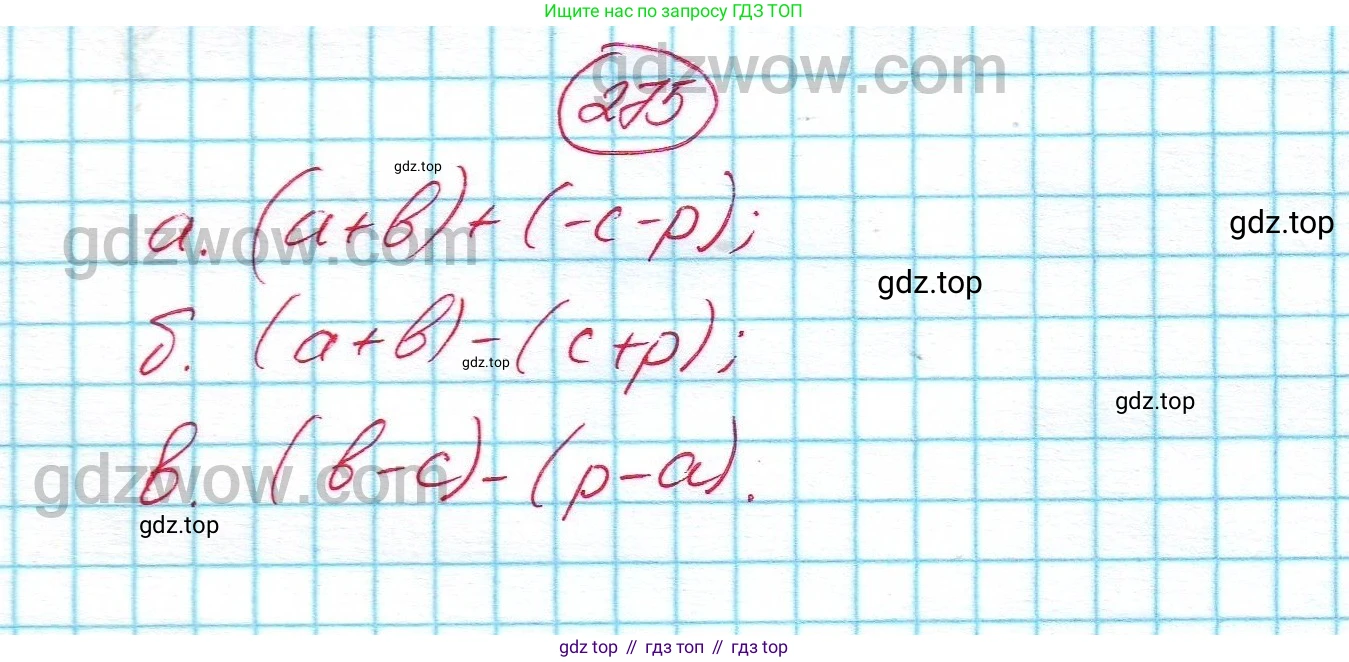 Ищите нас по запросу ГДЗ ТОП
gdzwow.com
275
gdz.top
а. (а+в)+(-с-р);
gdzwow.com
gdz.top
gdz.top
б. (а+в)-(с+р);
gdz.top
gdz.top
в. (в-с)-(р-а).
gdzwow.com
gdz.top
gdz top // гдз топ // гдз top